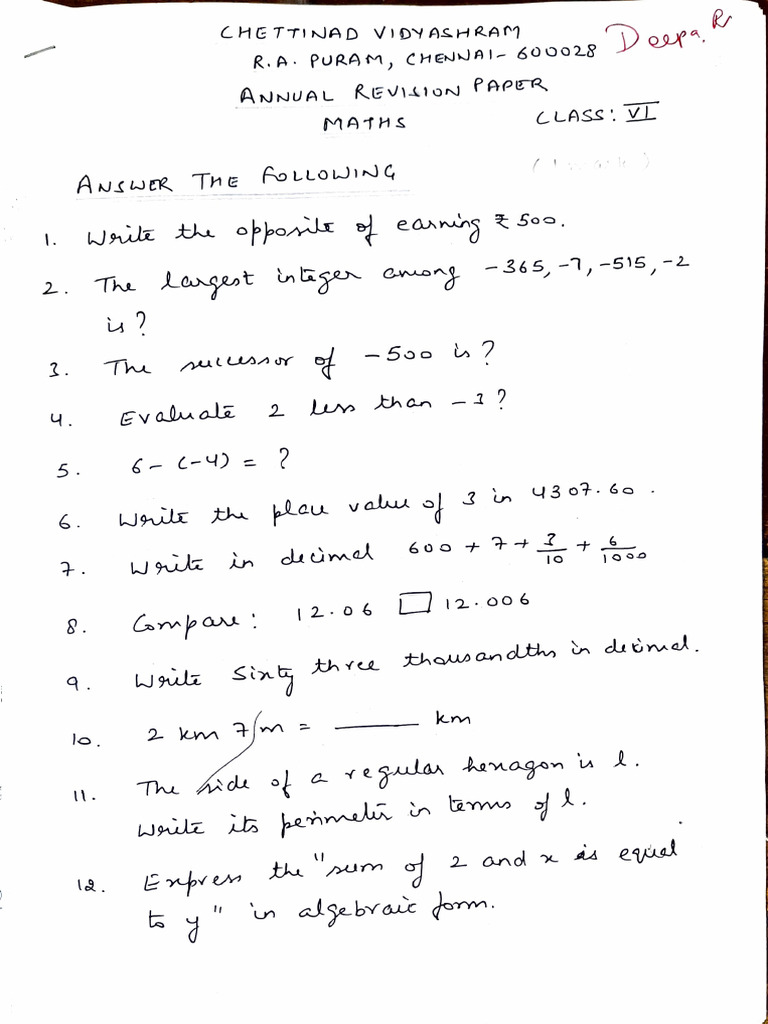 CHETTINAD VIDYASHRAM
R.A. PURAM, CHENNAI-600028 Deepa. R
ANNUAL REVISION PAPER
MATHS CLASS: VI
ANSWER THE FOLLOWING
1. Write the opposite of earning ₹ 500.
2. The largest integer among -365, -7, -515, -2
is?
3. The successor of -500 is?
4. Evaluate 2 less than -3?
5. 6-(-4) = ?
6. Write the place value of 3 in 4307.60.
7. Write in decimal 600 + 7 + 3/10 + 6/1000
8. Compare: 12.06 □ 12.006
9. Write Sixty three thousandths in decimal.
10. 2 km 7 m = ______ km
11. The side of a regular hexagon is l.
Write its perimeter in terms of l.
12. Express the "sum of 2 and x is equal
to y" in algebraic form.